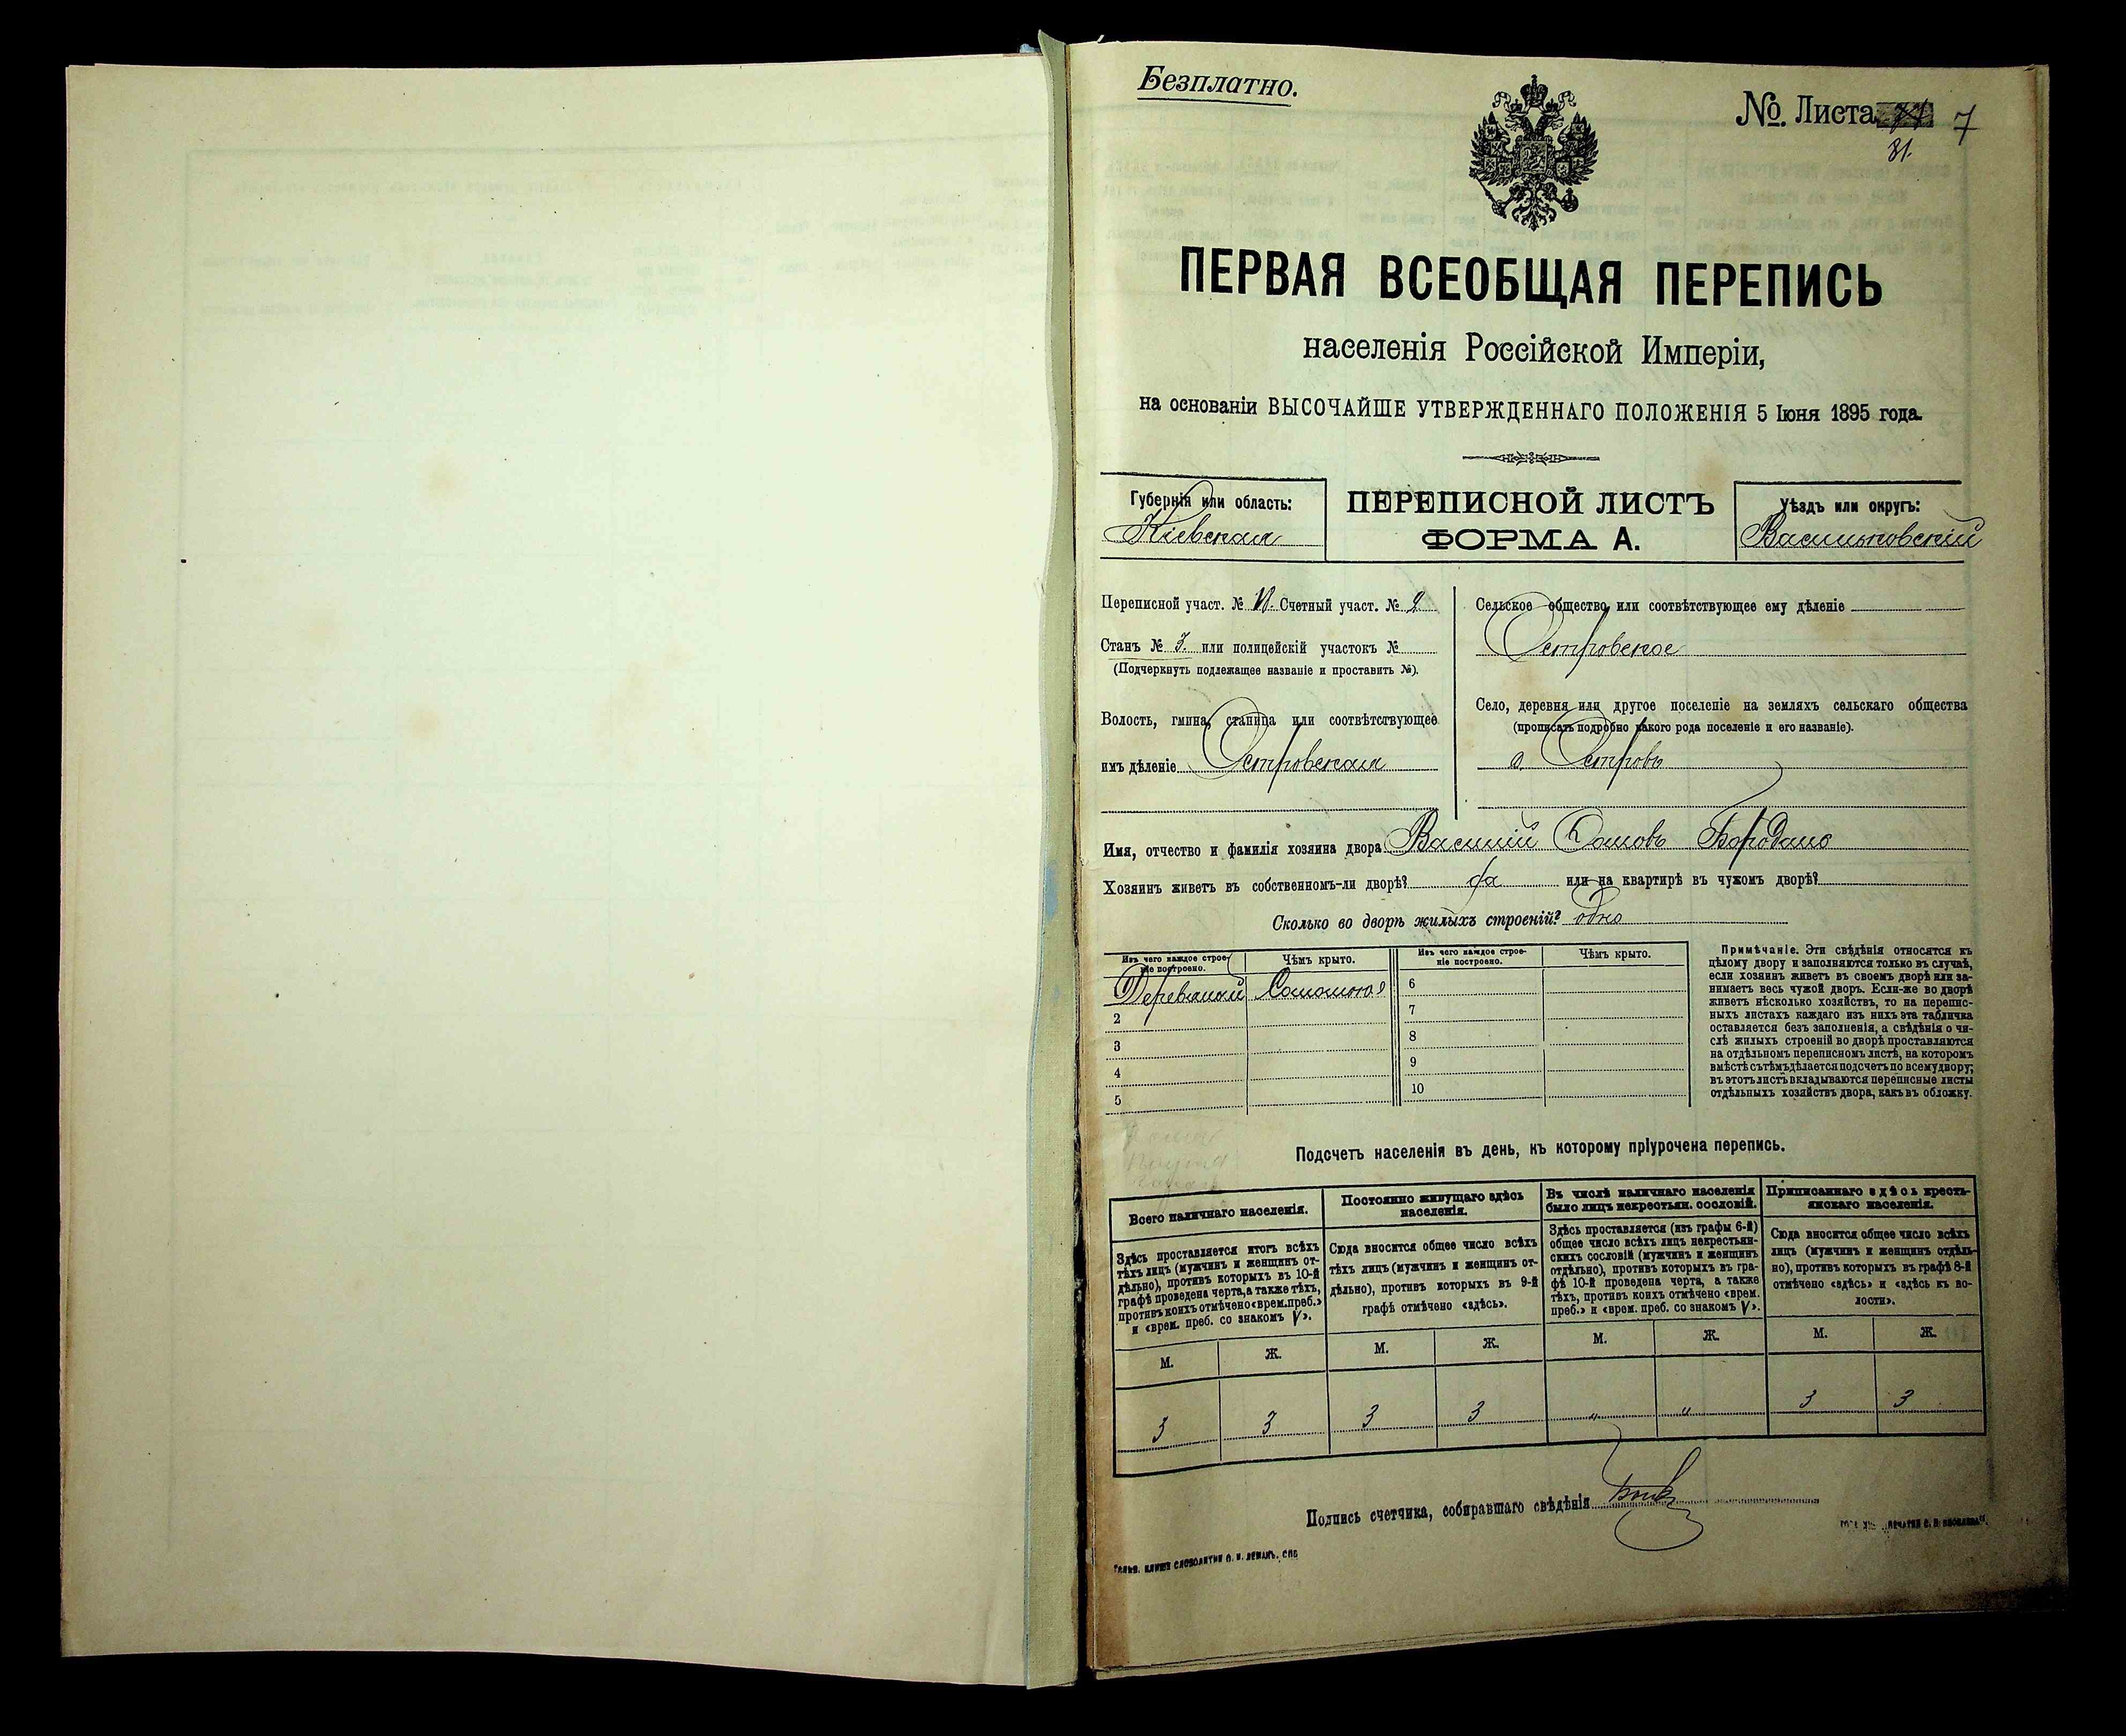 Безплатно.
№ Листа 7
81.
ПЕРВАЯ ВСЕОБЩАЯ ПЕРЕПИСЬ
населенія Россійской Имперіи,
на основаніи ВЫСОЧАЙШЕ УТВЕРЖДЕННАГО ПОЛОЖЕНІЯ 5 Іюня 1895 года.
Губернія или область:
Кіевская
ПЕРЕПИСНОЙ ЛИСТЪ
ФОРМА А.
Уѣздъ или округъ:
Васильковскій
Переписной участ. № VI. Счетный участ. № 2
Станъ № 3. или полицейскій участокъ №
(Подчеркнуть подлежащее названіе и проставить №).
Волость, гмина, станица или соотвѣтствующее
имъ дѣленіе Островская
Сельское общество или соотвѣтствующее ему дѣленіе
Островское
Село, деревня или другое поселеніе на земляхъ сельскаго общества
(прописать подробно какого рода поселеніе и его названіе).
с. Островъ
Имя, отчество и фамилія хозяина двора Василій Бородань
Хозяинъ живетъ въ собственномъ-ли дворѣ? да или на квартирѣ въ чужомъ дворѣ?
Сколько во дворѣ жилыхъ строеній? одно
Изъ чего каждое строе-
ніе построено.
Чѣмъ крыто.
Деревянный Соломою
2
3
4
5
Изъ чего каждое строе-
ніе построено.
Чѣмъ крыто.
6
7
8
9
10
Примѣчаніе. Эти свѣдѣнія относятся къ
цѣлому двору и заполняются только въ случаѣ,
если хозяинъ живетъ въ своемъ дворѣ или за-
нимаетъ весь чужой дворъ. Если-же во дворѣ
живетъ нѣсколько хозяйствъ, то на перепис-
ныхъ листахъ каждаго изъ нихъ эта табличка
оставляется безъ заполненія, а свѣдѣнія о чи-
слѣ жилыхъ строеній во дворѣ проставляются
на отдѣльномъ переписномъ листѣ, на которомъ
вмѣстѣ съ тѣмъ дѣлается подсчетъ по всему двору;
въ этотъ листъ вкладываются переписные листы
отдѣльныхъ хозяйствъ двора, какъ въ обложку.
Подсчетъ населенія въ день, къ которому пріурочена перепись.
Всего наличнаго населенія.
Здѣсь проставляется итогъ всѣхъ
тѣхъ лицъ (мужчинъ и женщинъ от-
дѣльно), противъ которыхъ въ 10-й
графѣ проведена черта, а также тѣхъ,
противъ коихъ отмѣчено «врем. преб.»
и «врем. преб. со знакомъ V».
М. Ж.
3 3
Постоянно живущаго здѣсь
населенія.
Сюда вносится общее число всѣхъ
тѣхъ лицъ (мужчинъ и женщинъ от-
дѣльно), противъ которыхъ въ 9-й
графѣ отмѣчено «здѣсь».
М. Ж.
3 3
Въ числѣ наличнаго населенія
было лицъ некрестьян. сословій.
Здѣсь проставляется (изъ графы 6-й)
общее число всѣхъ лицъ некрестьян-
скихъ сословій (мужчинъ и женщинъ
отдѣльно), противъ которыхъ въ гра-
фѣ 10-й проведена черта, а также
тѣхъ, противъ коихъ отмѣчено «врем.
преб.» и «врем. преб. со знакомъ V».
М. Ж.
" "
Приписаннаго здѣсь кресть-
янскаго населенія.
Сюда вносится общее число всѣхъ
лицъ (мужчинъ и женщинъ отдѣль-
но), противъ которыхъ въ графѣ 8-й
отмѣчено «здѣсь» и «здѣсь къ во-
лости».
М. Ж.
3 3
Подпись счетчика, собиравшаго свѣдѣнія